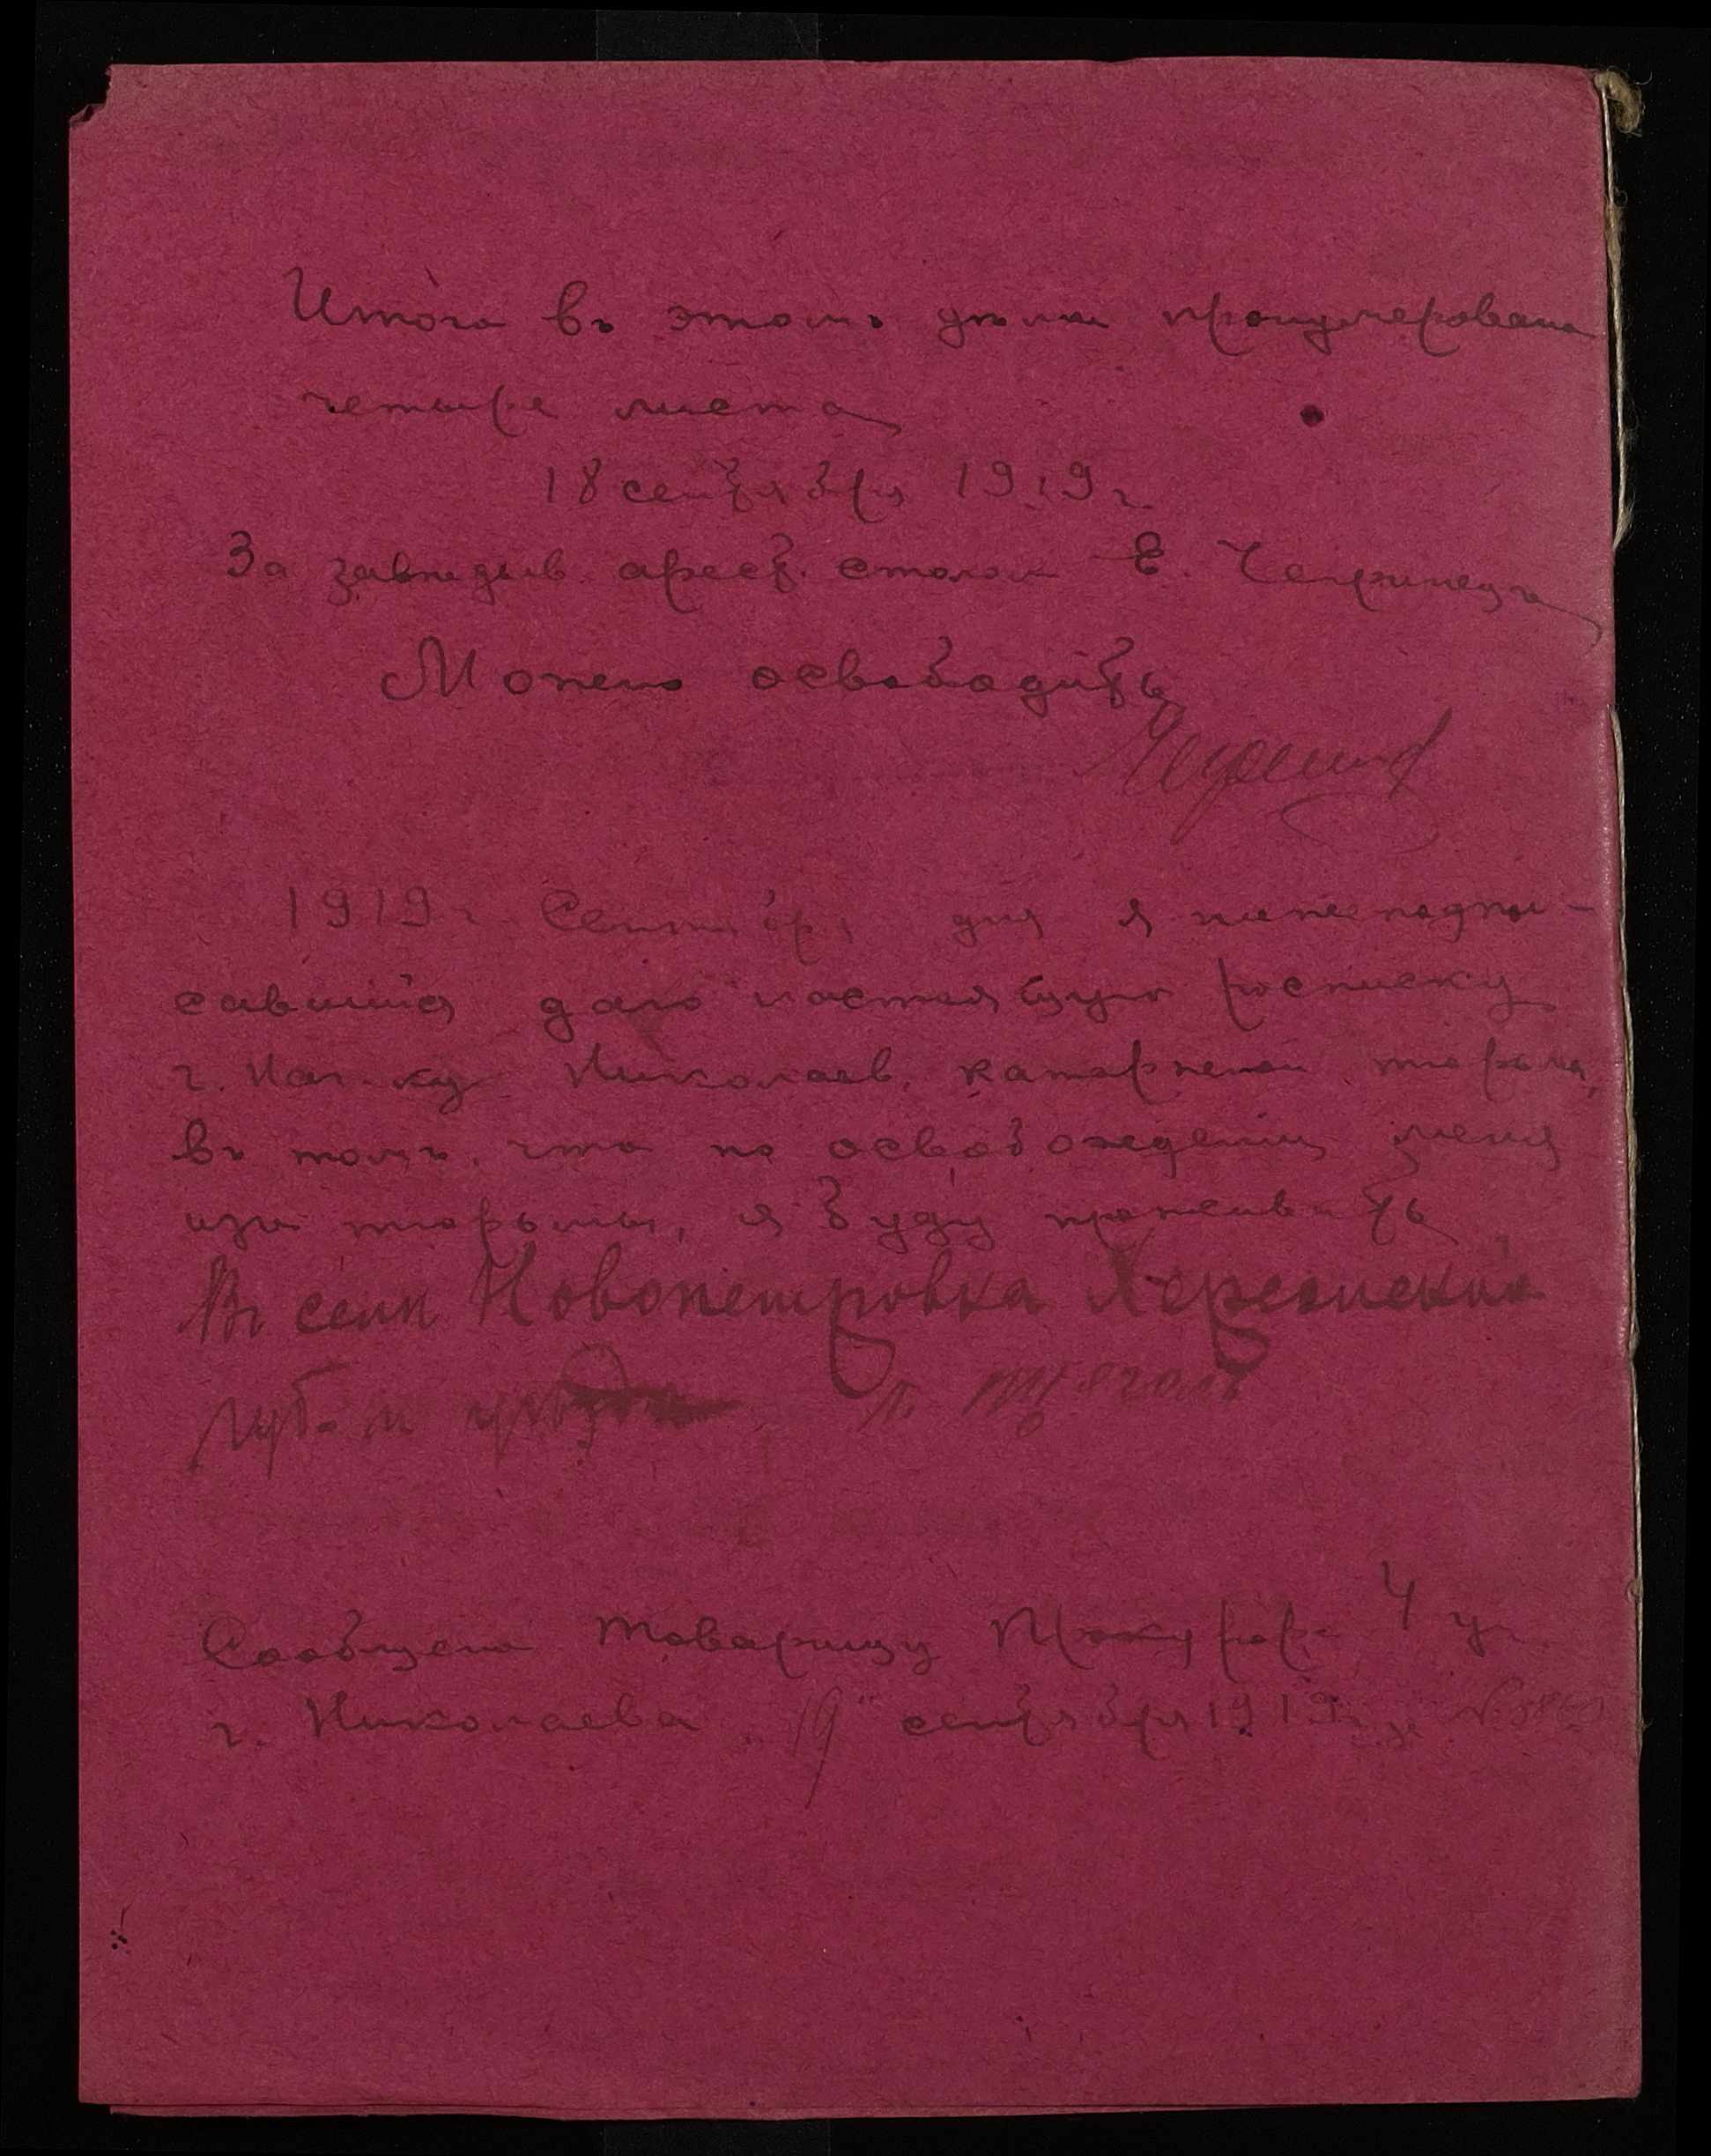 Итого въ этомъ дѣлѣ пронумеровано
четыре листа
18 сентября 1919 г.
За завѣдыв. арест. столом Е.
Можно освободить
1919 г. Сентября дня я нижеподпи-
савшийся даю настоящую росписку
г. Нач-ку Николаев. каторжной тюрьмы,
въ томъ, что по освобождении меня
изъ тюрьмы, я буду проживать
Въ селѣ Новопетровка Херсонской
губ. и уѣзда п.
Сообщено Товарищу Прокурора 4 уч.
г. Николаева "19" сентября 1919 г. за №